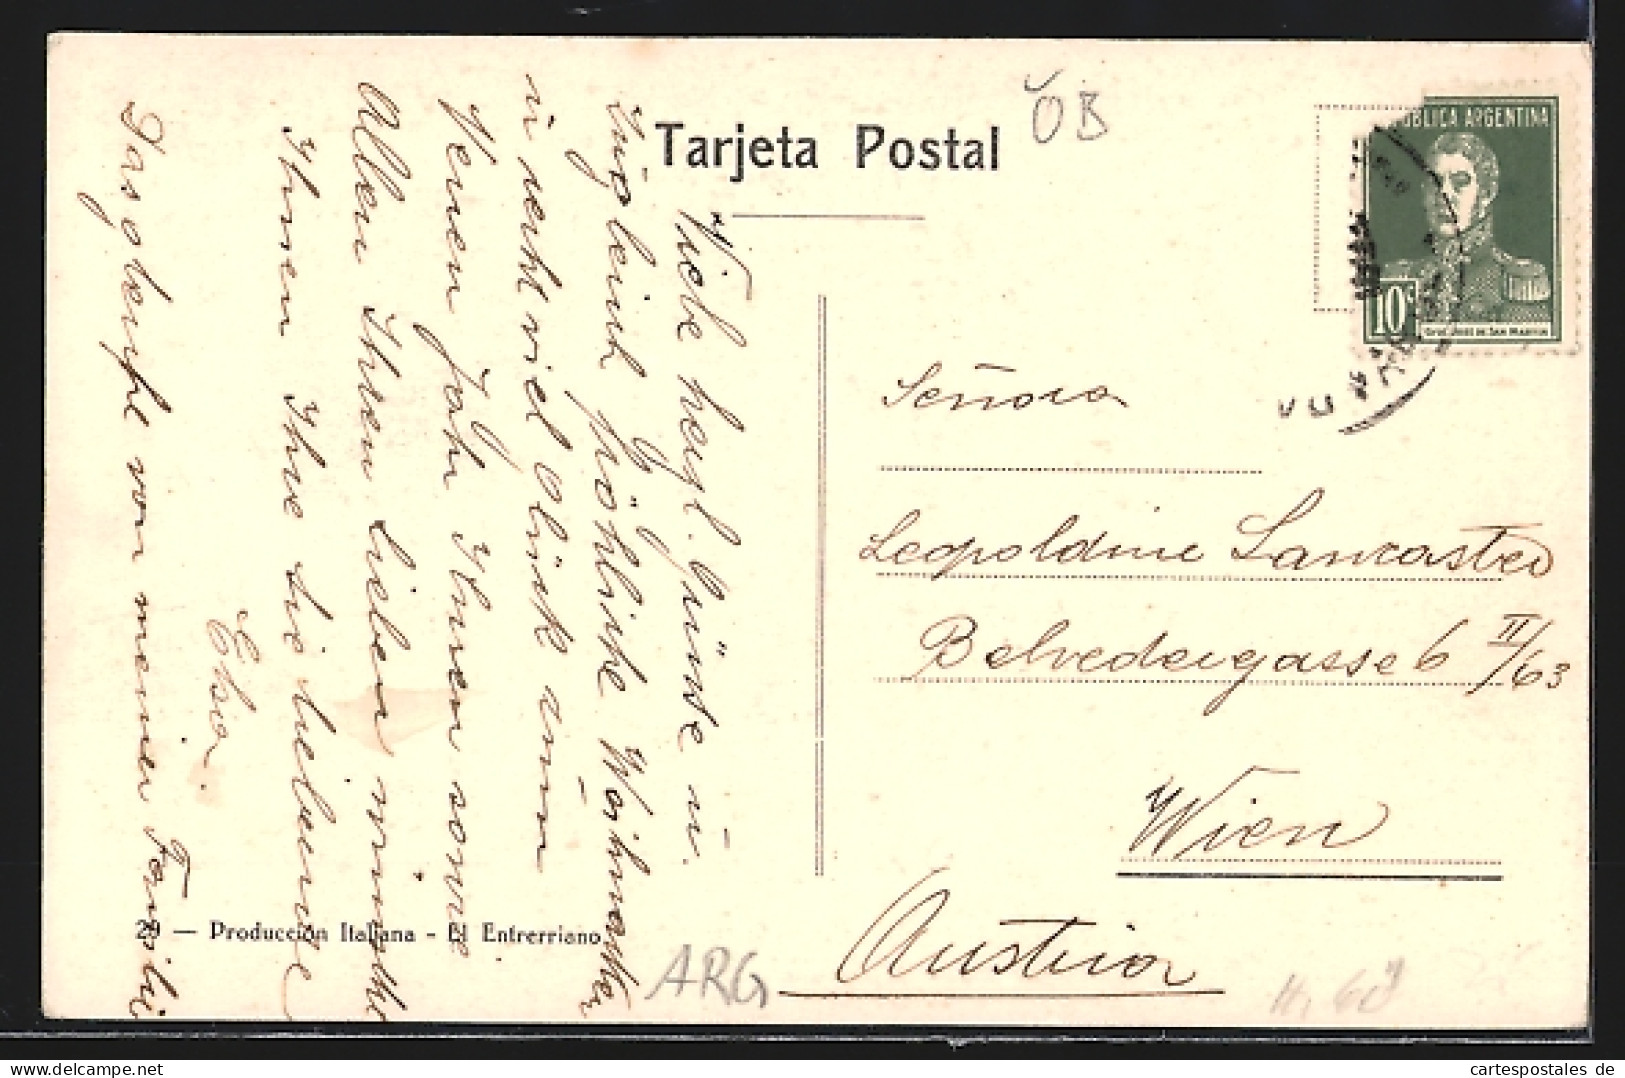 Tarjeta Postal
ÖB
REPÚBLICA ARGENTINA
10c
GRAL. JOSÉ DE SAN MARTÍN
Viele herzl. Grüsse u.
zugleich fröhliche Weihnachten
u. recht viel Glück zum
Neuen Jahr Ihnen sowie
Allen Ihren Lieben wünscht
Ihnen Ihre Sie liebende
Elsa.
Dasselbe von meiner Familie
Señora
Leopoldine Lancaster
Belvederegasse 6 II/63
Wien
Austria
29 — Producción Italiana - El Entrerriano
ARG
cartespostales.de
www.delcampe.net